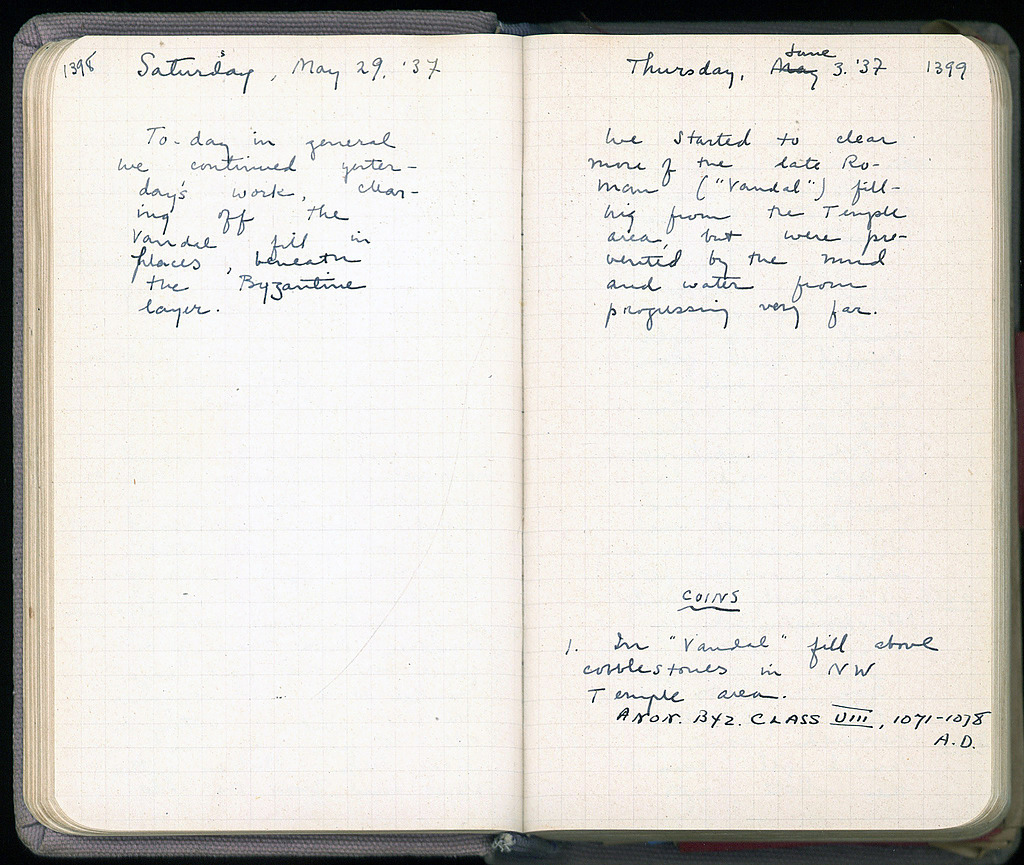 1398
Saturday, May 29. '37
To-day in general
we continued yester-
day's work, clear-
ing off the
Vandal fill in
places, beneath
the Byzantine
layer.
Thursday, May June 3. '37
1399
We started to clear
more of the late Ro-
man ("Vandal") fill-
ing from the Temple
area, but were pre-
vented by the mud
and water from
progressing very far.
COINS
1. In "Vandal" fill above
cobblestones in NW
Temple area.
ANON. BYZ. CLASS VIII, 1071-1078
A.D.